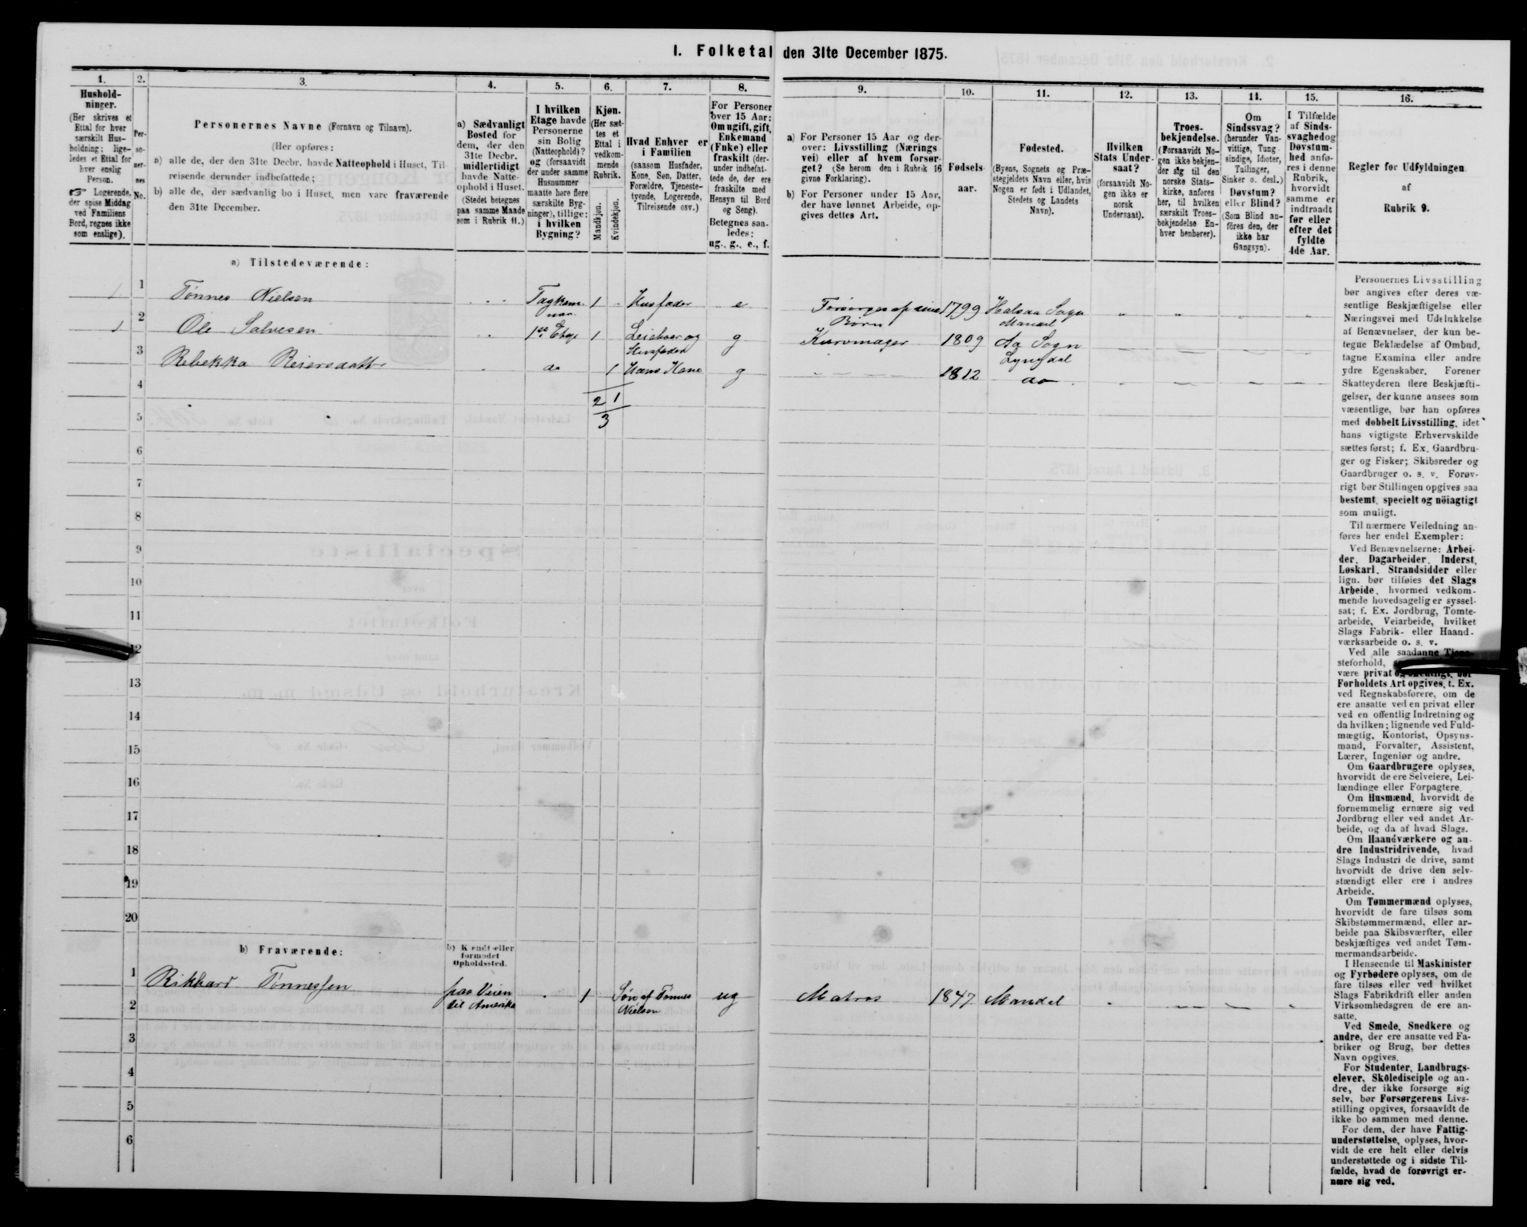 I. Folketal den 31te December 1875.
1.
2.
3.
4.
5.
6.
7.
8.
9.
10.
11.
12.
13.
14.
15.
16.
Hushold-
ninger.
(Her skrives et
Ettal for hver
særskilt Hus-
holdning; lige-
ledes et Ettal for
hver enslig
Person.
☞ Logerende,
der spise Middag
ved Familiens
Bord, regnes ikke
som enslige).
Per-
so-
ner-
nes
No.
Personernes Navne (Fornavn og Tilnavn).
(Her opføres:
a) alle de, der den 31te Decbr. havde Natteophold i Huset, Til-
reisende derunder indbefattede;
b) alle de, der sædvanlig bo i Huset, men vare fraværende
den 31te December.
a) Sædvanligt
Bosted for
dem, der den
31te Decbr.
midlertidigt
havde Natte-
ophold i Huset.
(Stedet betegnes
paa samme Maade
som i Rubrik 11.)
I hvilken
Etage havde
Personerne
sin Bolig
(Natteophold)?
og (forsaavidt
der under samme
Husnummer
maatte høre flere
særskilte Byg-
ninger), tillige:
i hvilken
Bygning?
Kjøn.
(Her sæt-
tes et
Ettal i
vedkom-
mende
Rubrik.
Mandkjøn.
Kvindekjøn.
Hvad Enhver er
i Familien
(saasom Husfader,
Kone, Søn, Datter,
Forældre, Tjeneste-
tyende, Logerende,
Tilreisende osv.)
For Personer
over 15 Aar:
Om ugift, gift,
Enkemand
(Enke) eller
fraskilt (der-
under indbefat-
tede de, der ere
fraskilte med
Hensyn til Bord
og Seng).
Betegnes saa-
ledes:
ug., g., e., f.
a) For Personer 15 Aar og der-
over: Livsstilling (Nærings
vei) eller af hvem forsør-
get? (Se herom den i Rubrik 16
givne Forklaring).
b) For Personer under 15 Aar,
der have lønnet Arbeide, op-
gives dettes Art.
Fødsels-
aar.
Fødested.
(Byens, Sognets og Præ-
stegjeldets Navn eller, hvis
Nogen er født i Udlandet,
Stedets og Landets
Navn).
Hvilken
Stats Under-
saat?
(forsaavidt No-
gen ikke er
norsk
Undersaat).
Troes-
bekjendelse.
(Forsaavidt No-
gen ikke bekjen-
der sig til den
norske Stats-
kirke, anføres
her, til hvilken
særskilt Troes-
bekjendelse En-
hver henhører).
Om
Sindssvag?
(herunder Van-
vittige, Tung
sindige, Idioter,
Tullinger,
Sinker o. desl.)
Døvstum?
eller Blind?
(Som Blind an-
føres den, der
ikke har
Gangsyn).
I Tilfælde
af Sinds-
svaghed og
Døvstum-
hed anfø-
res i denne
Rubrik,
hvorvidt
samme er
indtraadt
før eller
efter det
fyldte
4de Aar.
Regler for Udfyldningen
af
Rubrik 9.
a) Tilstedeværende:
1 1 Tønnes Nielsen Tagkam- 1 Husfader e Forsørges af sine 1799 Halsaa Sogn
mer Børn Mandal
1 2 Ole Salvesen 1ste Etage 1 Leieboer og g Kurvmager 1809 Aa Sogn
Husfader Lyngdal
3 Rebekka Reiersdatter do 1 Hans Kone g 1812 do
4
2 1
5
3
6
7
8
9
10
11
12
13
14
15
16
17
18
19
20
b) Fraværende:
b) Kendt eller
formodet
Opholdssted.
1 Rikhard Tønnessen paa Veien 1 Søn af Tønnes ug Matros 1847 Mandal
2 til Amerika Nielsen
3
4
5
6
Personernes Livsstilling
bør angives efter deres væ-
sentlige Beskjæftigelse eller
Næringsvei med Udelukkelse
af Benævnelser, der kun be-
tegne Beklædelse af Ombud,
tagne Examina eller andre
ydre Egenskaber. Forener
Skatteyderen flere Beskjæfti-
gelser, der kunne ansees som
væsentlige, bør han opføres
med dobbelt Livsstilling, idet
hans vigtigste Erhvervskilde
sættes først; f. Ex. Gaardbru-
ger og Fisker; Skibsreder og
Gaardbruger o. s. v. Forøv-
rigt bør Stillingen opgives saa
bestemt, specielt og nöiagtigt
som muligt.
Til nærmere Veiledning an-
føres her endel Exempler:
Ved Benævnelserne: Arbei-
der, Dagarbeider, Inderst,
Løskarl, Strandsidder eller
lign. bør tilføies det Slags
Arbeide, hvormed vedkom-
mende hovedsagelig er syssel-
sat; f. Ex. Jordbrug, Tomte-
arbeide, Veiarbeide, hvilket
Slags Fabrik- eller Haand-
værksarbeide o. s. v.
Ved alle saadanne Tjene-
steforhold,
være privat og offentligt, bør
Forholdets Art opgives, t. Ex.
ved Regnskabsførere, om de
ere ansatte ved en privat eller
ved en offentlig Indretning og
da hvilken; lignende ved Fuld-
mægtig, Kontorist, Opsyns-
mand, Forvalter, Assistent,
Lærer, Ingeniør og andre.
Om Gaardbrugere oplyses,
hvorvidt de ere Selveiere, Lei-
lændinge eller Forpagtere.
Om Husmænd, hvorvidt de
fornemmelig ernære sig ved
Jordbrug eller ved andet Ar-
beide, og da af hvad Slags.
Om Haandværkere og an-
dre Industridrivende, hvad
Slags Industri de drive, samt
hvorvidt de drive den selv-
stændigt eller ere i andres
Arbeide.
Om Tømmermænd oplyses,
hvorvidt de fare tilsøs som
Skibstømmermænd, eller ar-
beide paa Skibsværfter, eller
beskjæftiges ved andet Tøm-
mermandsarbeide.
I Henseende til Maskinister
og Fyrbødere oplyses, om de
fare tilsøs eller ved hvilket
Slags Fabrikdrift eller anden
Virksomhedsgren de ere an-
satte.
Ved Smede, Snedkere og
andre, der ere ansatte ved Fa-
briker og Brug, bør dettes
Navn opgives.
For Studenter, Landbrugs-
elever, Skoledisciple og an-
dre, der ikke forsørge sig
selv, bør Forsørgerens Livs-
stilling opgives, forsaavidt de
ikke bo sammen med denne.
For dem, der have Fattig-
understøttelse, oplyses, hvor-
vidt de ere helt eller delvis
understøttede og i sidste Til-
fælde, hvad de forøvrigt er-
nære sig ved.